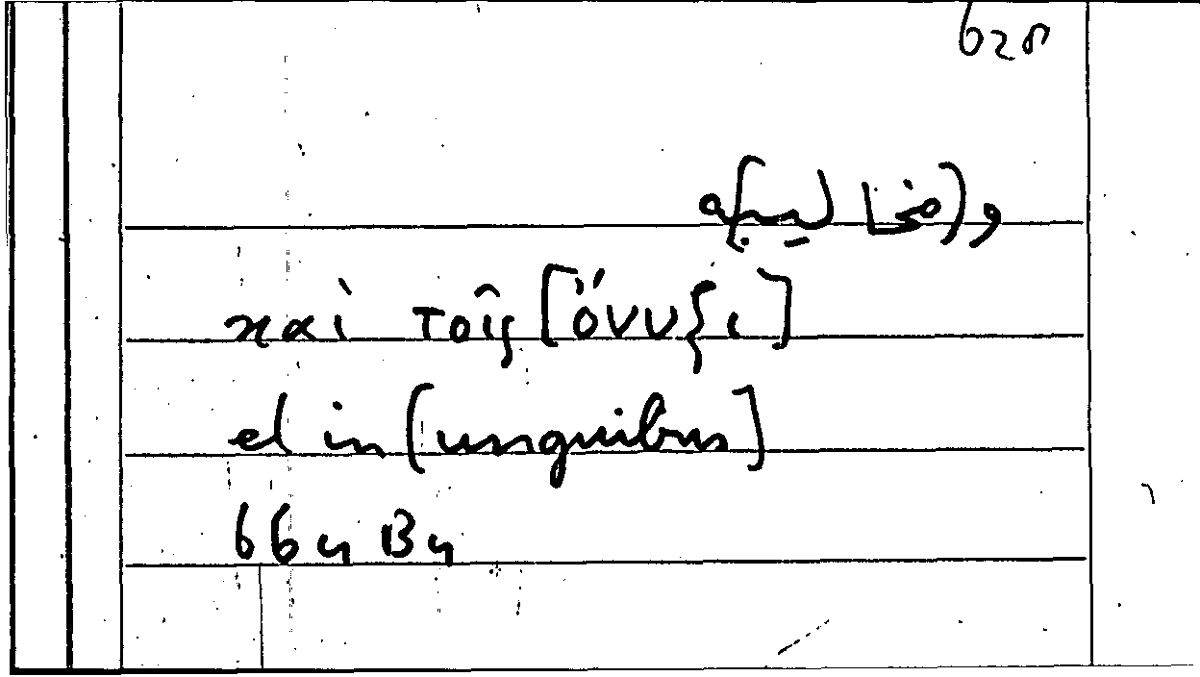 628
و(مخاليبه]
καὶ τοῖς [ὄνυξι]
et in [unguibus]
664 B4